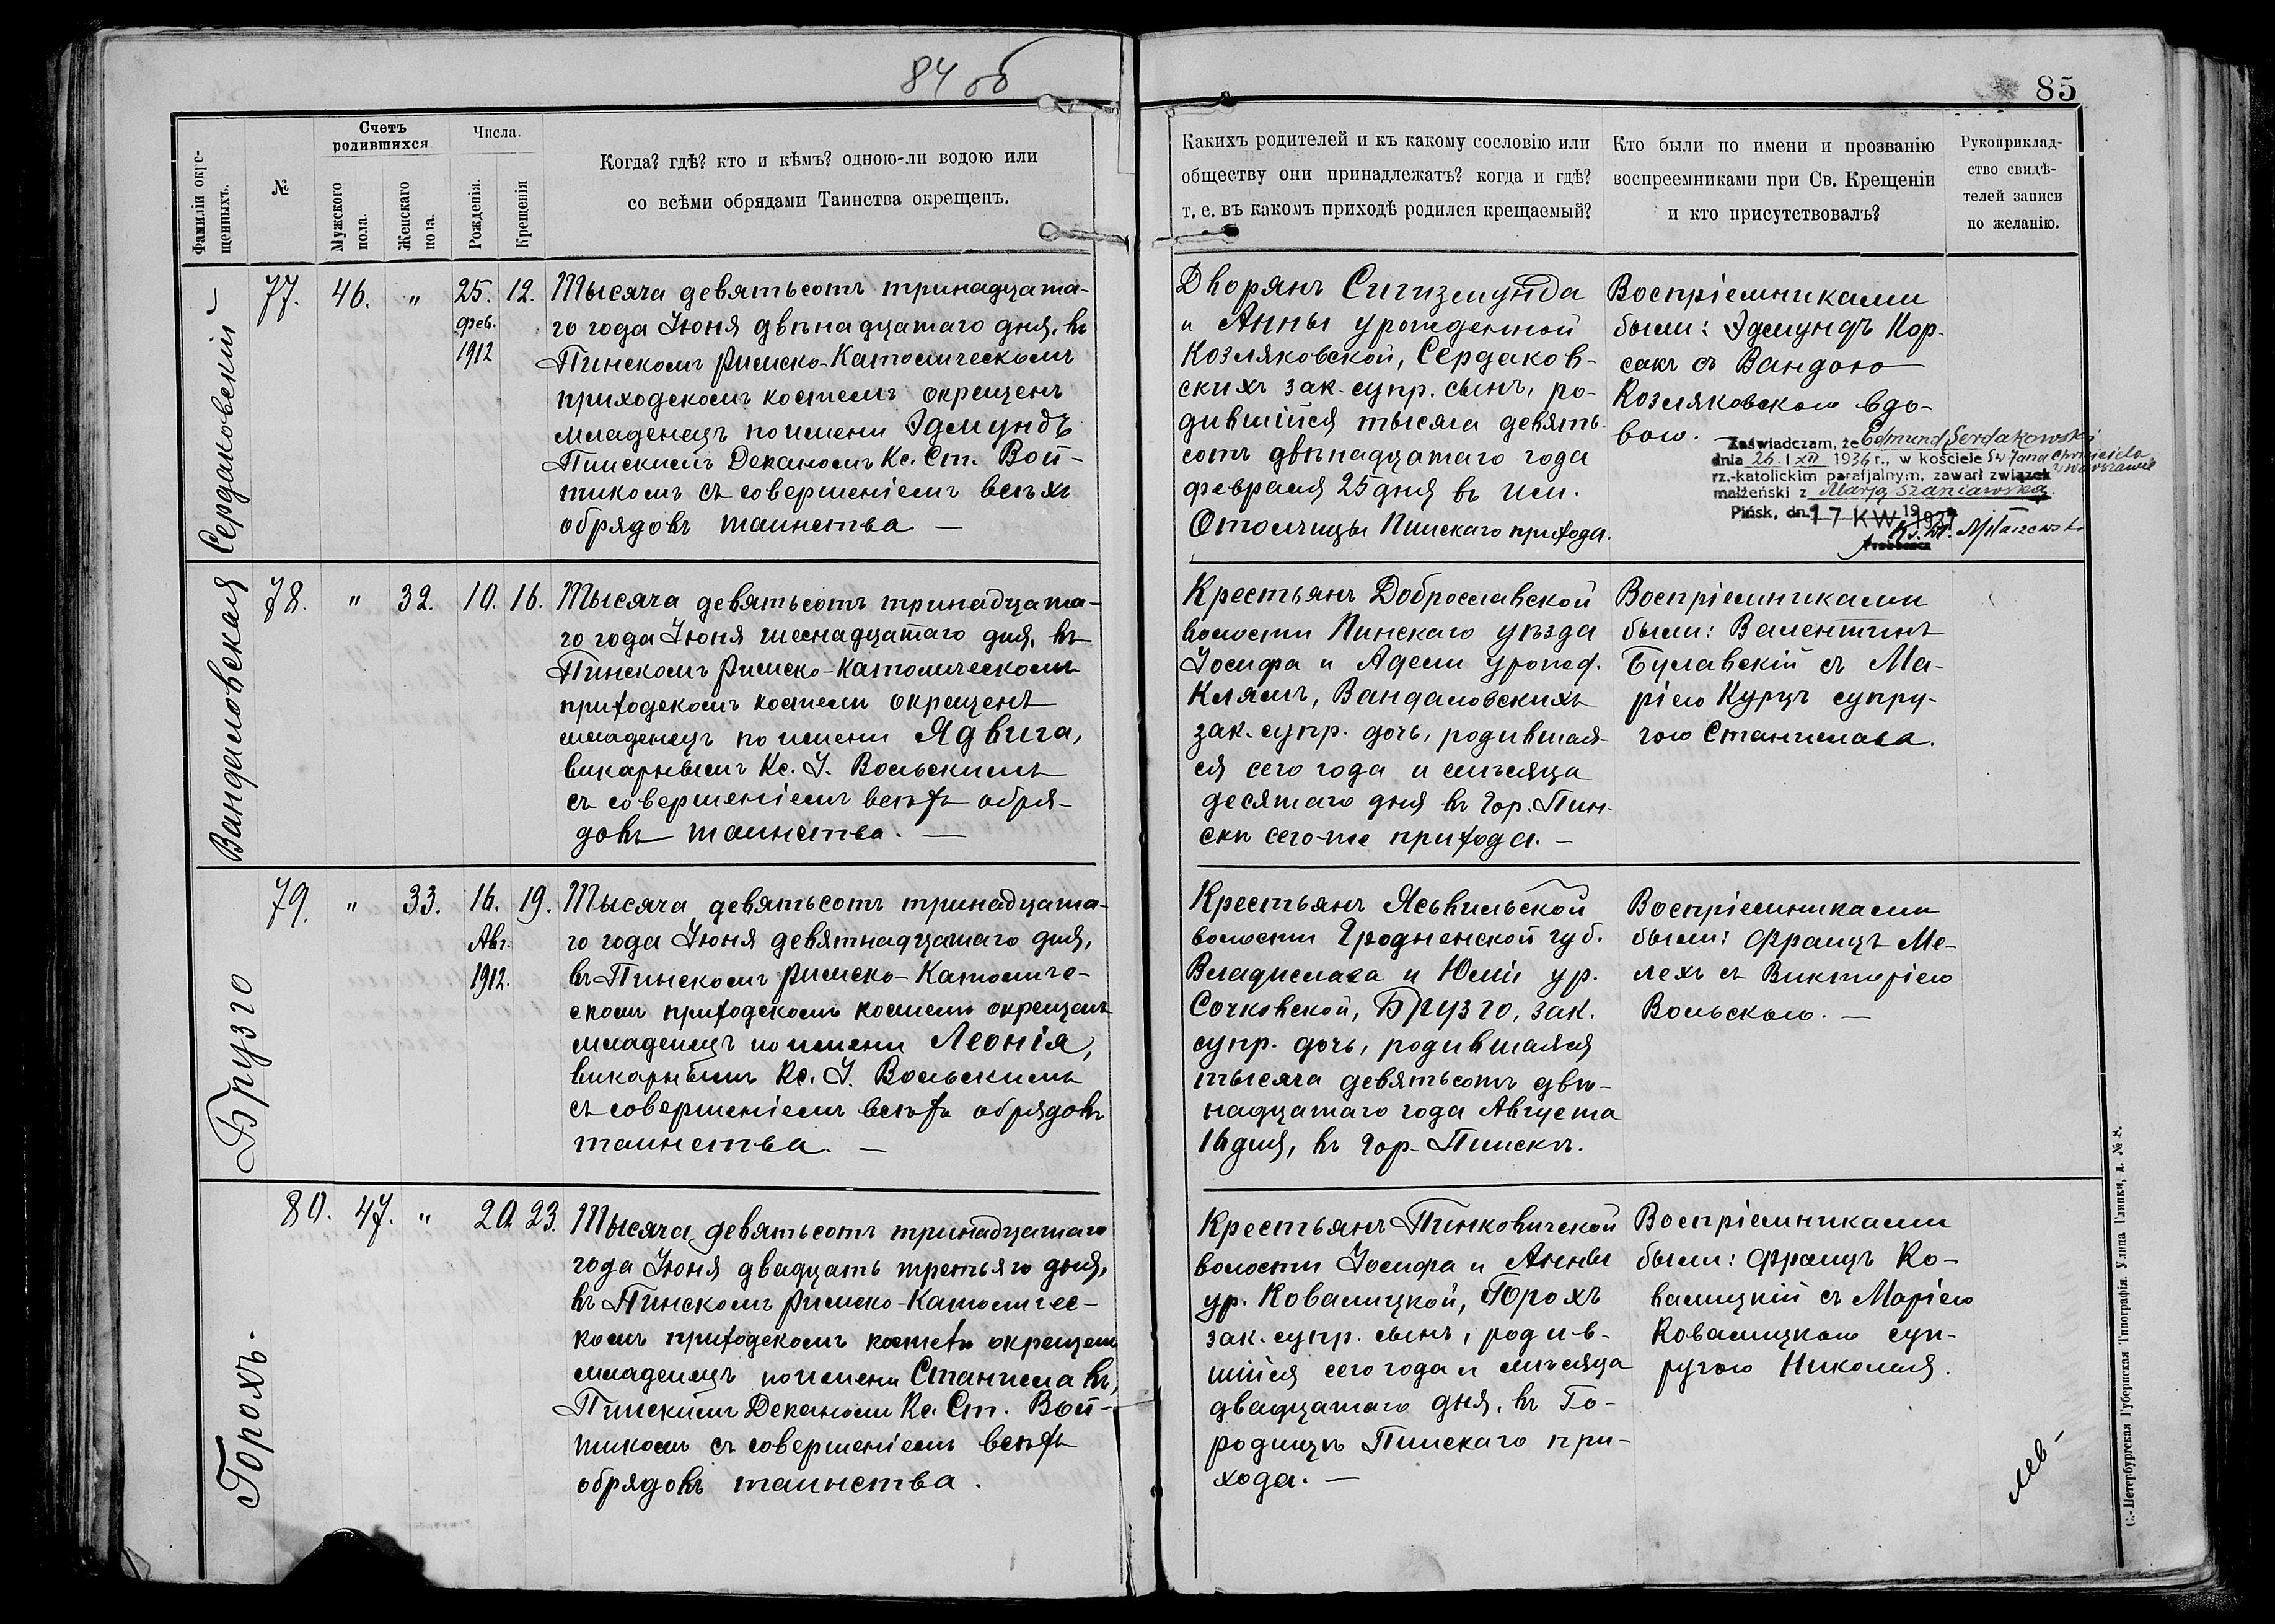 84 об
85
Фамиліи окре-
щенныхъ.
№
Счетъ
родившихся
Мужского
пола.
Женскаго
пола.
Числа.
Рожденія.
Крещенія
Когда? гдѣ? кто и кѣмъ? одною-ли водою или
со всѣми обрядами Таинства окрещенъ.
Какихъ родителей и къ какому сословію или
обществу они принадлежатъ? когда и гдѣ?
т. е. въ какомъ приходѣ родился крещаемый?
Кто были по имени и прозванію
воспреемниками при Св. Крещеніи
и кто присутствовалъ?
Рукоприклад-
ство свидѣ-
телей записи
по желанію.
Сердаковскій
77. 46. " 25. 12.
фев.
1912
Тысяча девятьсотъ тринадцата-
го года Іюня двѣнадцатаго дня, въ
Пинскомъ Римско-Католическомъ
приходскомъ костелѣ окрещенъ
младенецъ по имени Эдмундъ
Пинскимъ Деканомъ Кс. Ст. Вой-
тикомъ съ совершеніемъ всѣхъ
обрядовъ таинства —
Дворянъ Сигизмунда
и Анны урожденной
Козляковской, Сердаков-
скихъ зак. супр. сынъ, ро-
дившійся тысяча девять-
сотъ двѣнадцатаго года
февраля 25 дня въ им.
Отолчицы Пинскаго прихода.
Воспріемниками
были: Эдмундъ Кор-
сакъ съ Вандою
Козляковскою вдо-
вою. —
Zaświadczam, że Edmund Serdakowski
dnia 26. I XII 1936 r., w kościele Św Jana Chrzciciela
w Warszawie
rz.-katolickim parafjalnym, zawarł związek
małżeński z Marją Szaniawską.
Pińsk, dn. 17 KW 1937
Proboszcz
Вандаловская
78. " 32. 10. 16.
Тысяча девятьсотъ тринадцата-
го года Іюня шеснадцатаго дня, въ
Пинскомъ Римско-Католическомъ
приходскомъ костелѣ окрещенъ
младенецъ по имени Ядвига,
викарнымъ Кс. І. Вольскимъ
съ совершеніемъ всѣхъ обря-
довъ таинства. —
Крестьянъ Доброславской
волости Пинскаго уѣзда
Іосифа и Адели урожд.
Клямъ, Вандаловскихъ
зак. супр. дочь, родившая-
ся сего года и мѣсяца
десятаго дня въ гор. Пин-
скѣ сего-же прихода. —
Воспріемниками
были: Валентинъ
Булавскій съ Ма-
ріею Курцъ супру-
гою Станислава.
Брузго
79. " 33. 16. 19.
Авг.
1912.
Тысяча девятьсотъ тринадцата-
го года Іюня девятнадцатаго дня,
въ Пинскомъ Римско-Католиче-
скомъ приходскомъ костелѣ окрещенъ
младенецъ по имени Леонія,
викарнымъ Кс. І. Вольскимъ
съ совершеніемъ всѣхъ обрядовъ
таинства. —
Крестьянъ Ясьвильской
волости Гродненской губ.
Владислава и Юліи ур.
Сочковской, Брузго, зак.
супр. дочь, родившаяся
тысяча девятьсотъ двѣ-
надцатаго года Августа
16 дня, въ гор. Пинскѣ.
Воспріемниками
были: Францъ Ме-
лехъ съ Викторіею
Вольскою. —
Горохъ.
80. 47. " 20. 23.
Тысяча девятьсотъ тринадцатаго
года Іюня двадцать третьяго дня,
въ Пинскомъ Римско-Католичес-
комъ приходскомъ костелѣ окрещенъ
младенецъ по имени Станиславъ,
Пинскимъ Деканомъ Кс. Ст. Вой-
тикомъ съ совершеніемъ всѣхъ
обрядовъ таинства.
Крестьянъ Пинковичской
волости Іосифа и Анны
ур. Ковалицкой, Горохъ
зак. супр. сынъ, родив-
шійся сего года и мѣсяца
двадцатаго дня, въ Го-
родищѣ Пинскаго при-
хода. —
Воспріемниками
были: Францъ Ко-
валицкій съ Маріею
Ковалицкою суп-
ругою Николая.
С.-Петербургская Губернская Типографія. Улица Глинки, д. № 8.